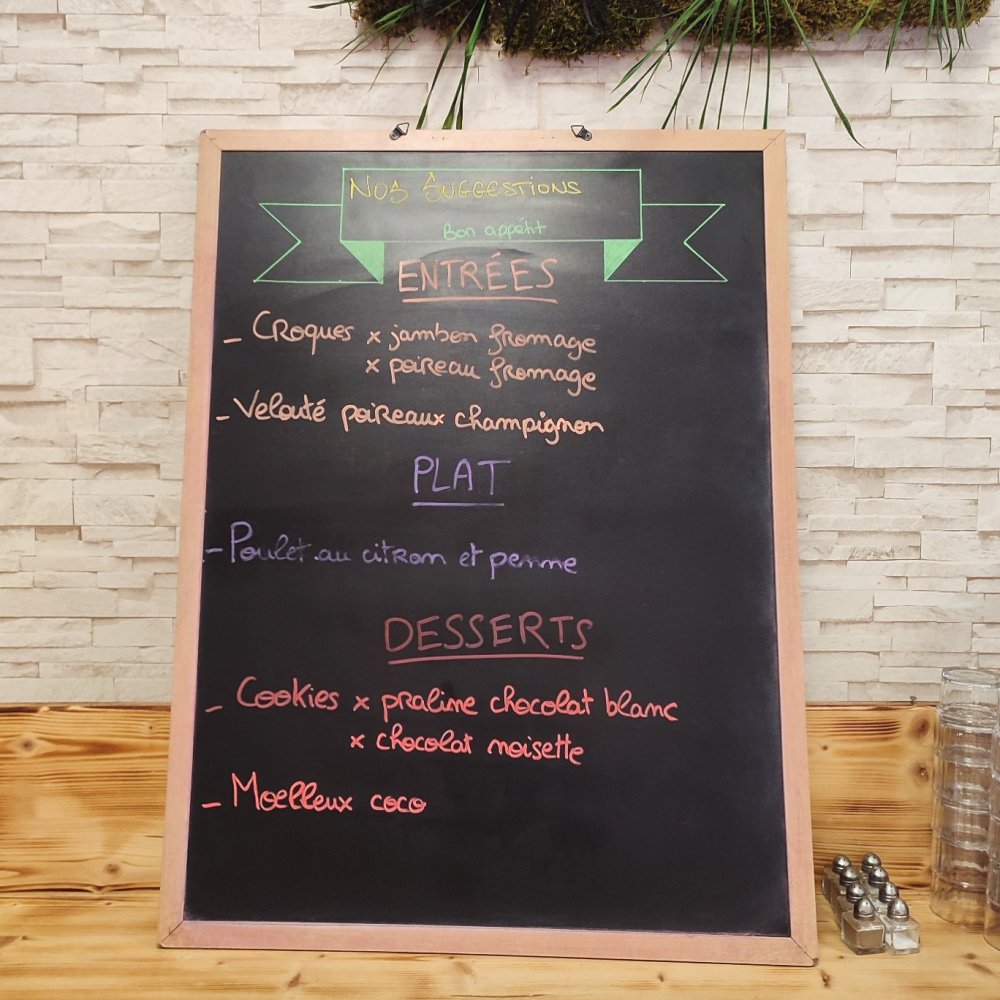 Nos Suggestions
Bon appétit
ENTRÉES
- Croques x jambon fromage
x poireau fromage
- Velouté poireaux champignon
PLAT
- Poulet au citron et penne
DESSERTS
- Cookies x praline chocolat blanc
x chocolat noisette
- Moelleux coco